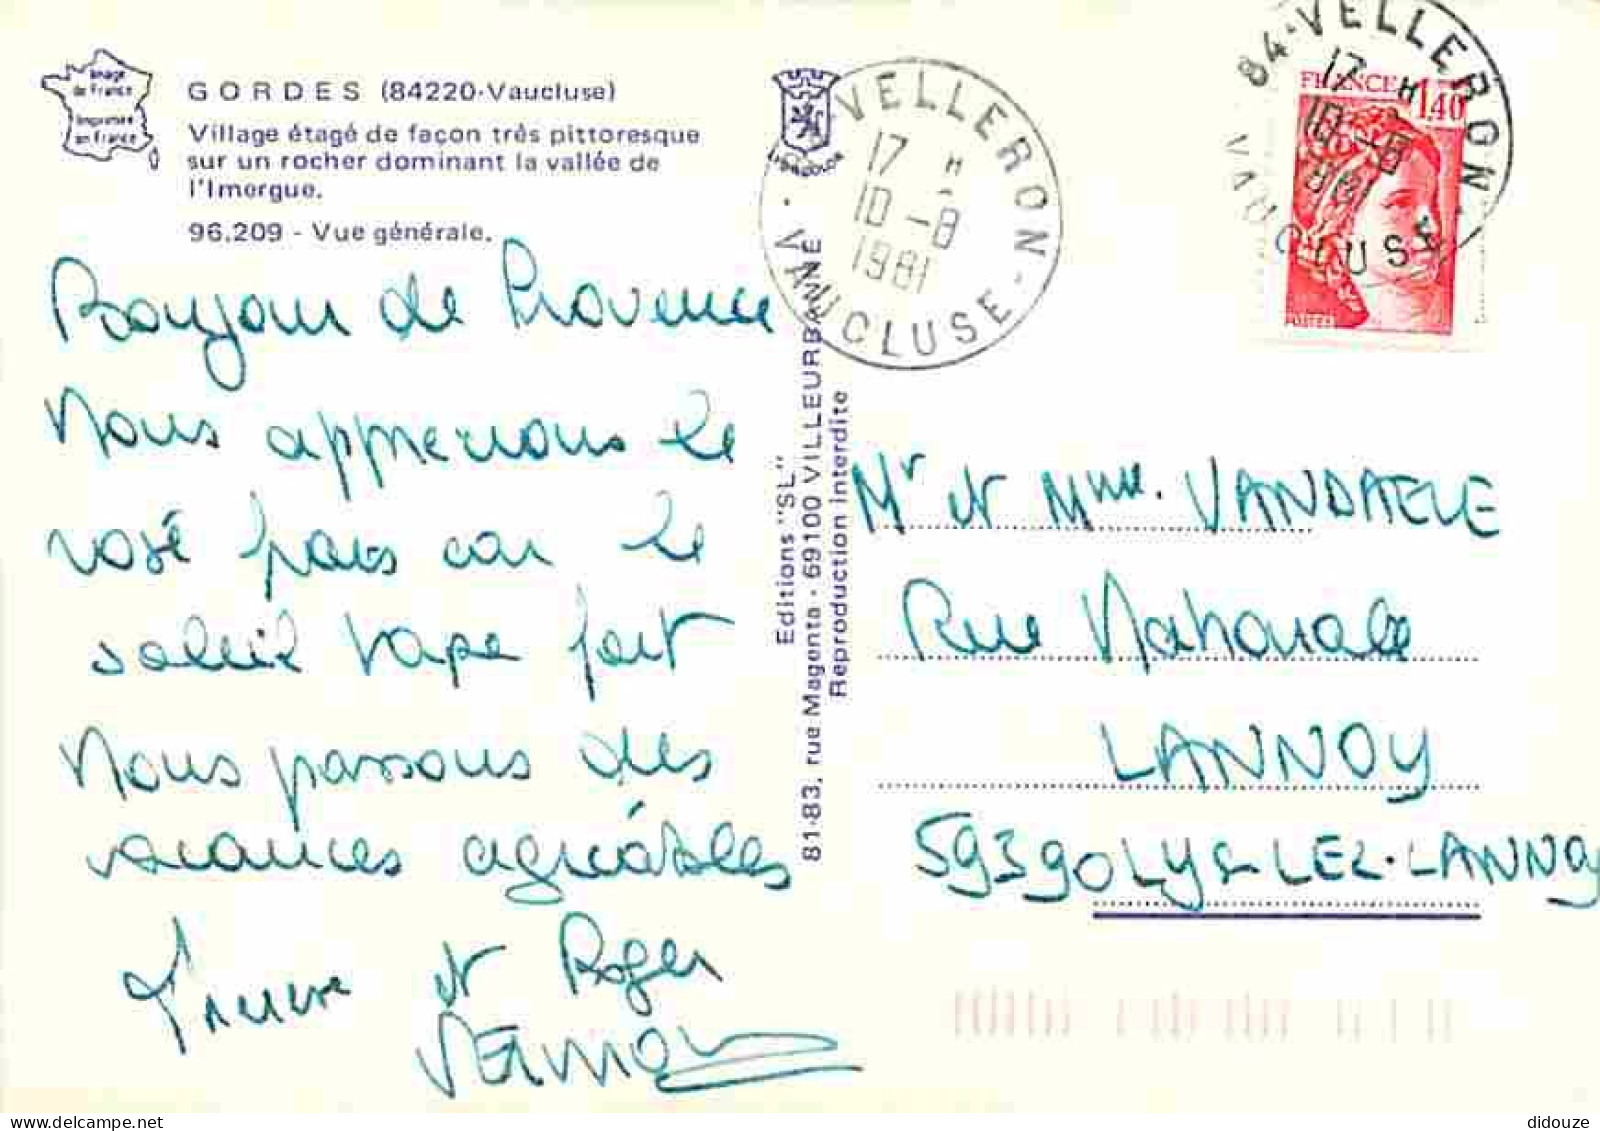 Image
de France
Imprimée
en France
GORDES (84220-Vaucluse)
Village étagé de façon très pittoresque
sur un rocher dominant la vallée de
l'Imergue.
96.209 - Vue générale.
Bonjour de Provence
Nous apprenons le
rosé frais car le
soleil tape fort
Nous passons des
vacances agréables
et Roger
Editions "SL"
81-83, rue Magenta - 69100 VILLEURBANNE
Reproduction interdite
VELLERON
17 H
10 -8
1981
VAUCLUSE
84-VELLERON
17 H
10 -8
1981
VAUCLUSE
FRANCE 1,40
POSTES
Mr et Mme. VANDAELE
Rue Nationale
LANNOY
59390 LYS LEZ-LANNOY
didouze @ delcampe.net